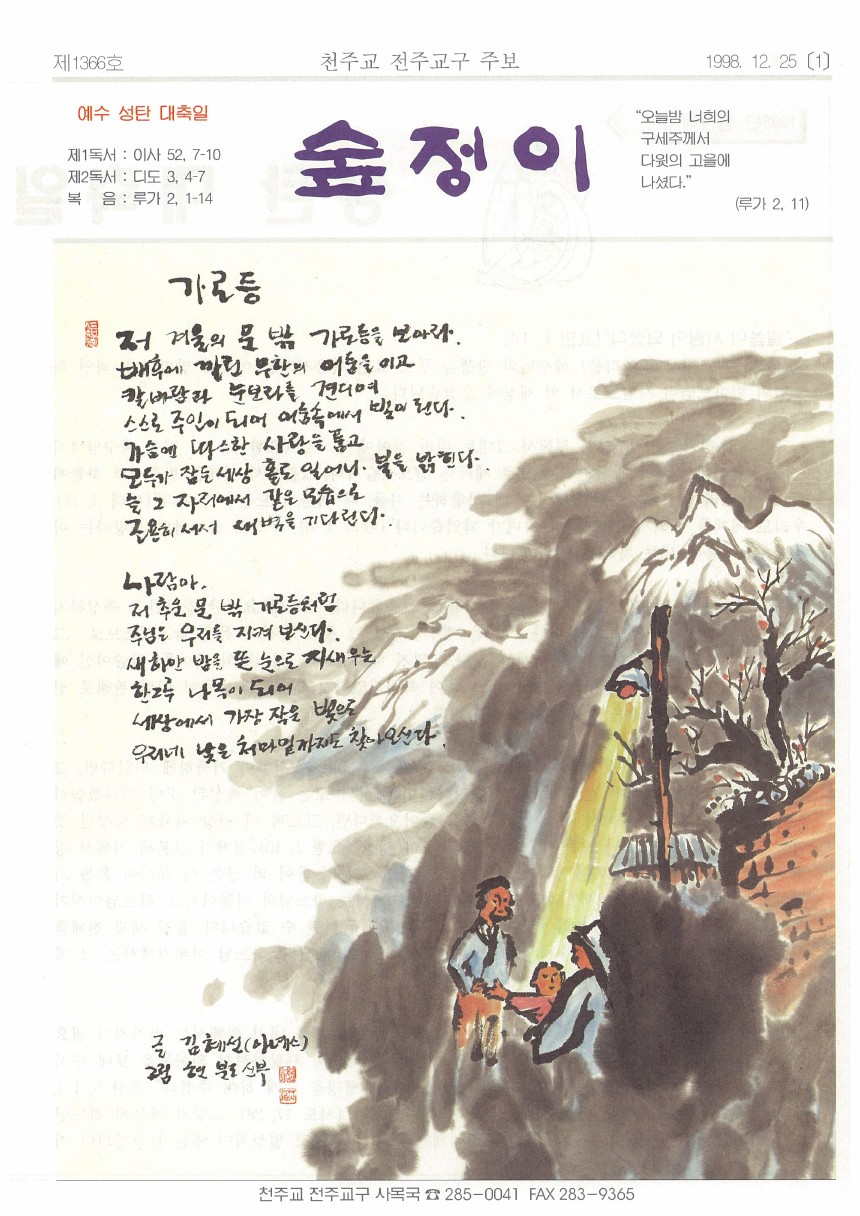 제1366호
천주교 전주교구 주보
1998. 12. 25 〔1〕
예수 성탄 대축일
제1독서 : 이사 52, 7-10
제2독서 : 디도 3, 4-7
복 음 : 루가 2, 1-14
숲정이
“오늘밤 너희의
구세주께서
다윗의 고을에
나셨다.”
(루가 2, 11)
가로등
저 겨울의 문 밖 가로등을 보아라.
배후에 밀린 무한의 어둠을 이고
칼바람과 눈보라를 견디며
스스로 주인이 되어 어둠속에서 빛이 된다.
가슴에 따스한 사랑을 품고
모두가 잠든 세상 홀로 일어나 불을 밝힌다.
늘 그 자리에서 같은 모습으로
조용히 서서 새벽을 기다린다.
사람아.
저 추운 문 밖 가로등처럼
주님은 우리를 지켜 보신다.
새하얀 밤을 뜬 눈으로 지새우는
한그루 나목이 되어
세상에서 가장 작은 빛으로
우리네 낮은 처마밑까지도 찾아오신다.
글 김혜선(아녜스)
그림 현 불로 신부
천주교 전주교구 사목국 ☎ 285-0041 FAX 283-9365